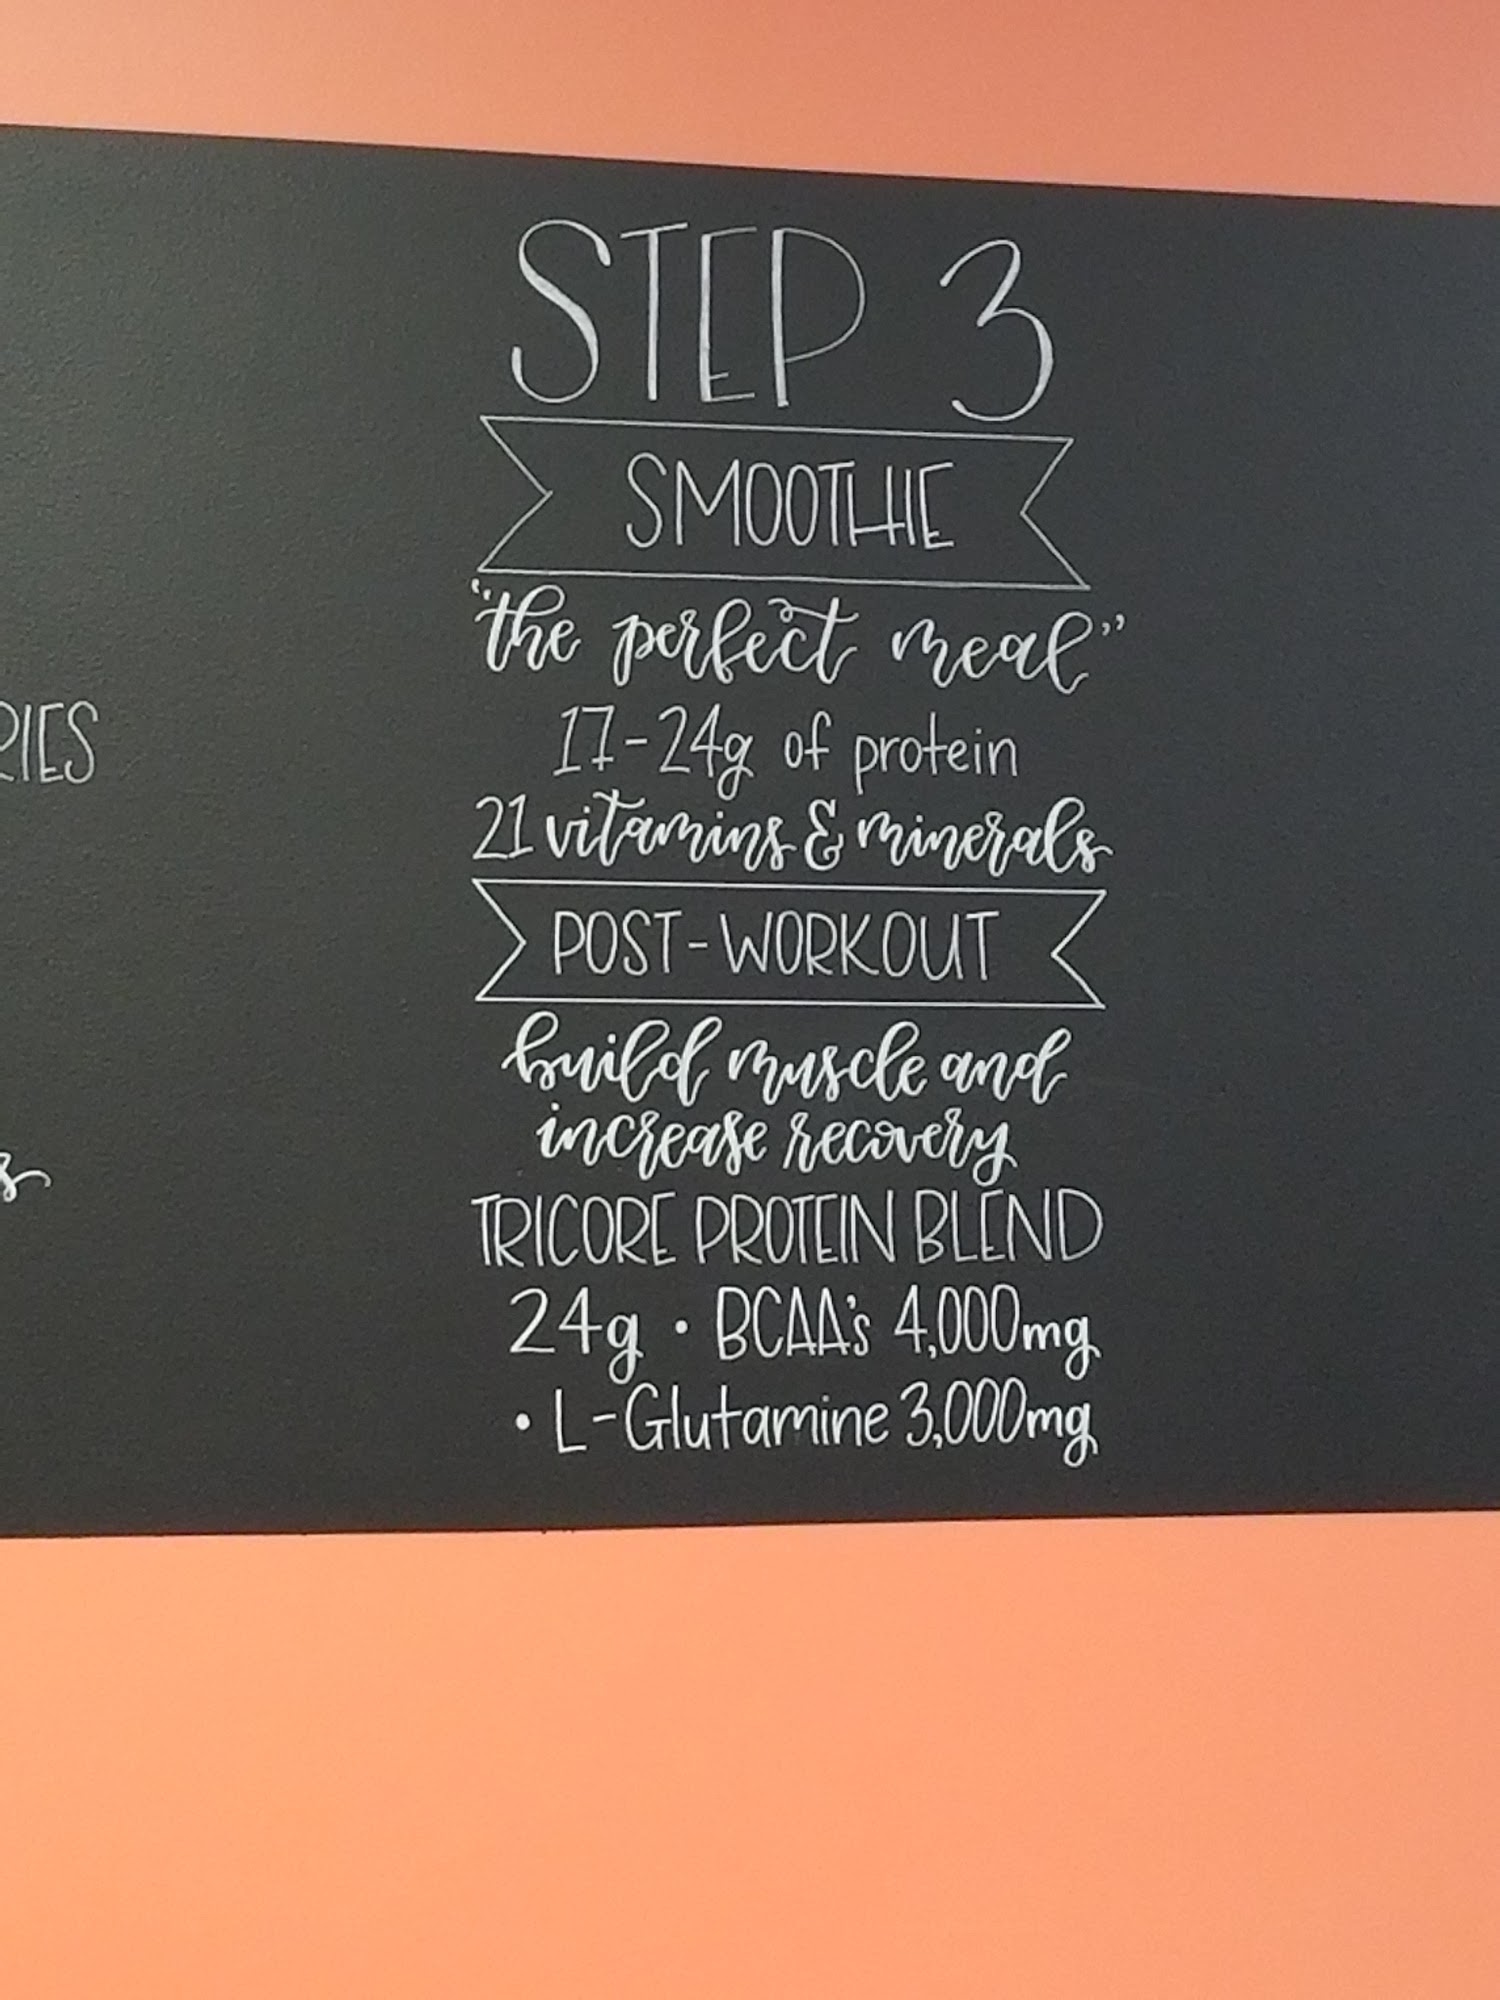 STEP 3
SMOOTHIE
"the perfect meal"
17-24g of protein
21 vitamins & minerals
POST-WORKOUT
build muscle and
increase recovery
TRICORE PROTEIN BLEND
24g • BCAA's 4,000mg
• L-Glutamine 3,000mg